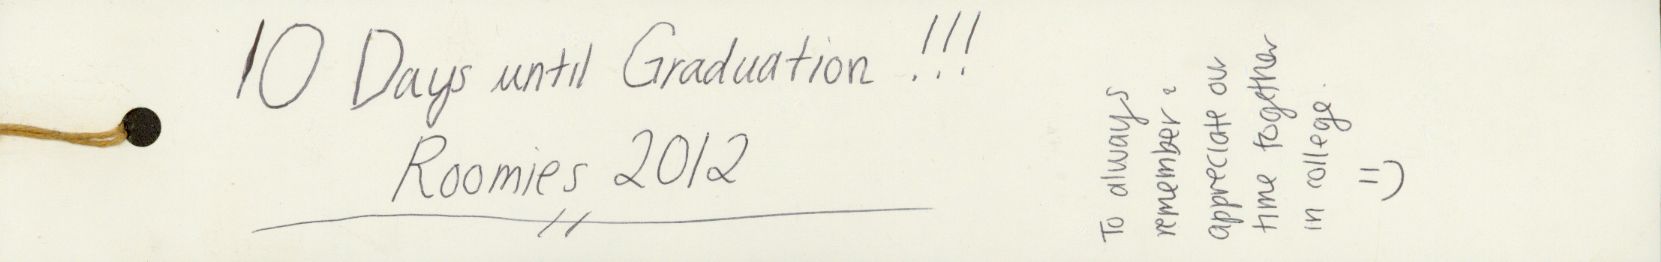 10 Days until Graduation !!!
Roomies 2012
To always
remember &
appreciate our
time together
in college.
=)